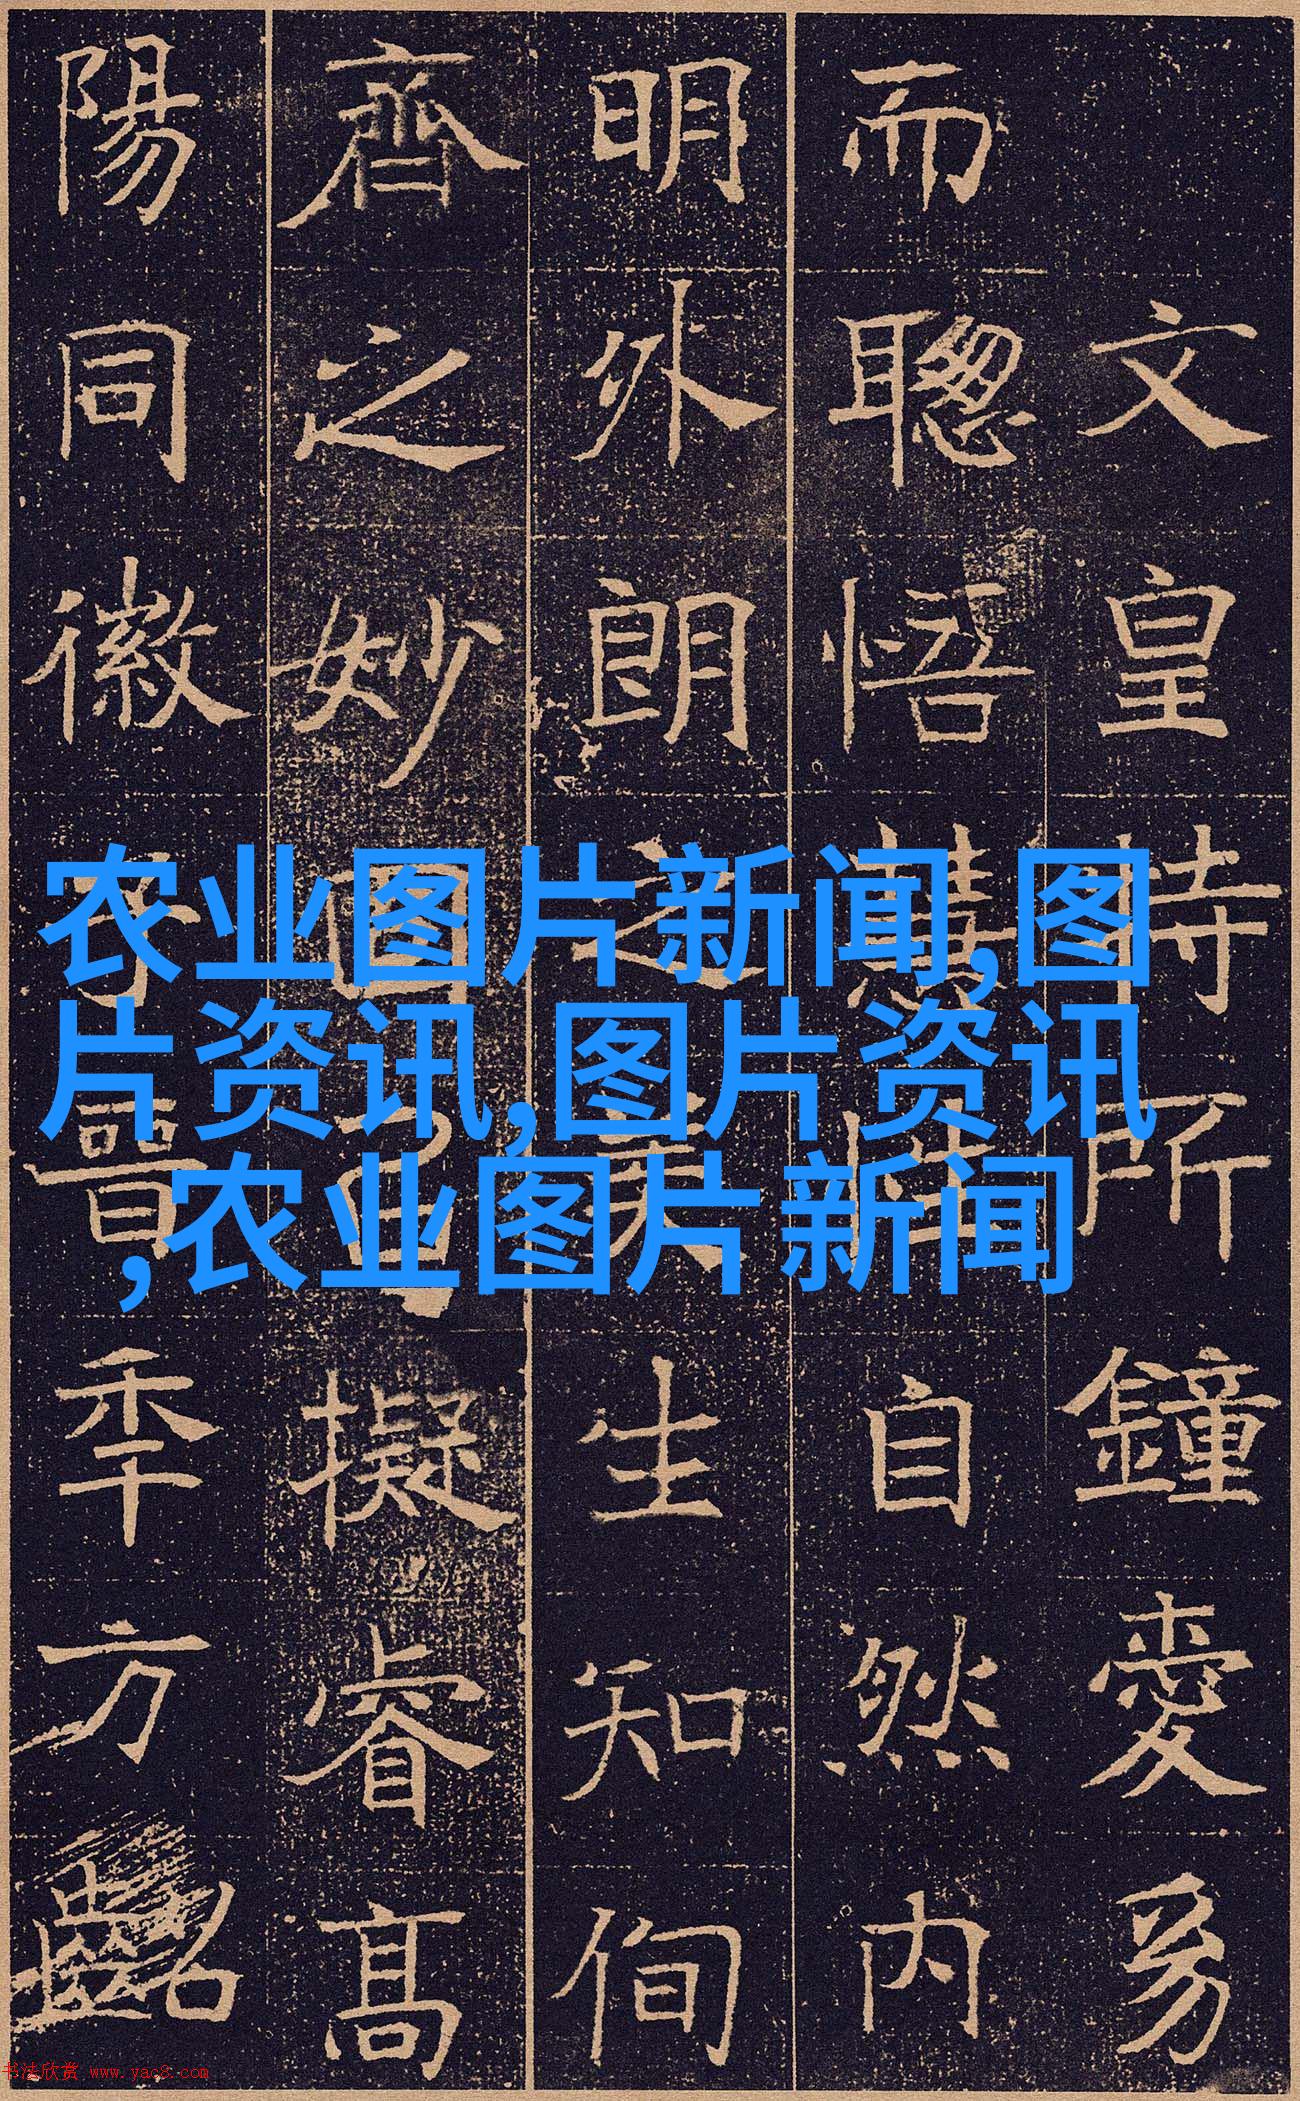 文皇特所鐘愛
而聰悟慧性自然内
明外朗之美生知徇
齊之妙擬睿高
陽同徽晉季方齠
农业图片新闻,图
片资讯,图片资讯
,农业图片新闻
书法欣赏 www.yac8.com